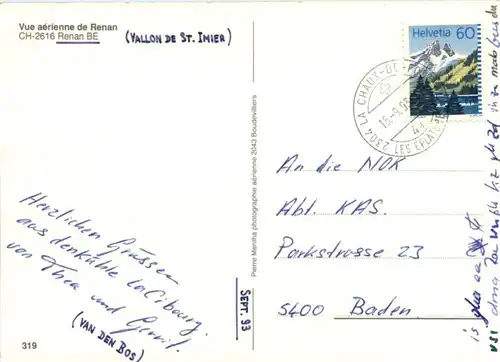 Vue aérienne de Renan
CH-2616 Renan BE
(VALLON DE ST. IMIER)
Helvetia 60
2304 LA CHAUX-DE-
LES EPLATURES
Herzlichen Grüssen
aus denkühle LaCibourg.
von Thea und Gerrit.
(VAN DEN BOS)
319
Pierre Mentha photographie aérienne 2043 Boudevilliers
SEPT. 93
An die NOK
Abt. KAS.
Parkstrasse 23
5400 Baden.